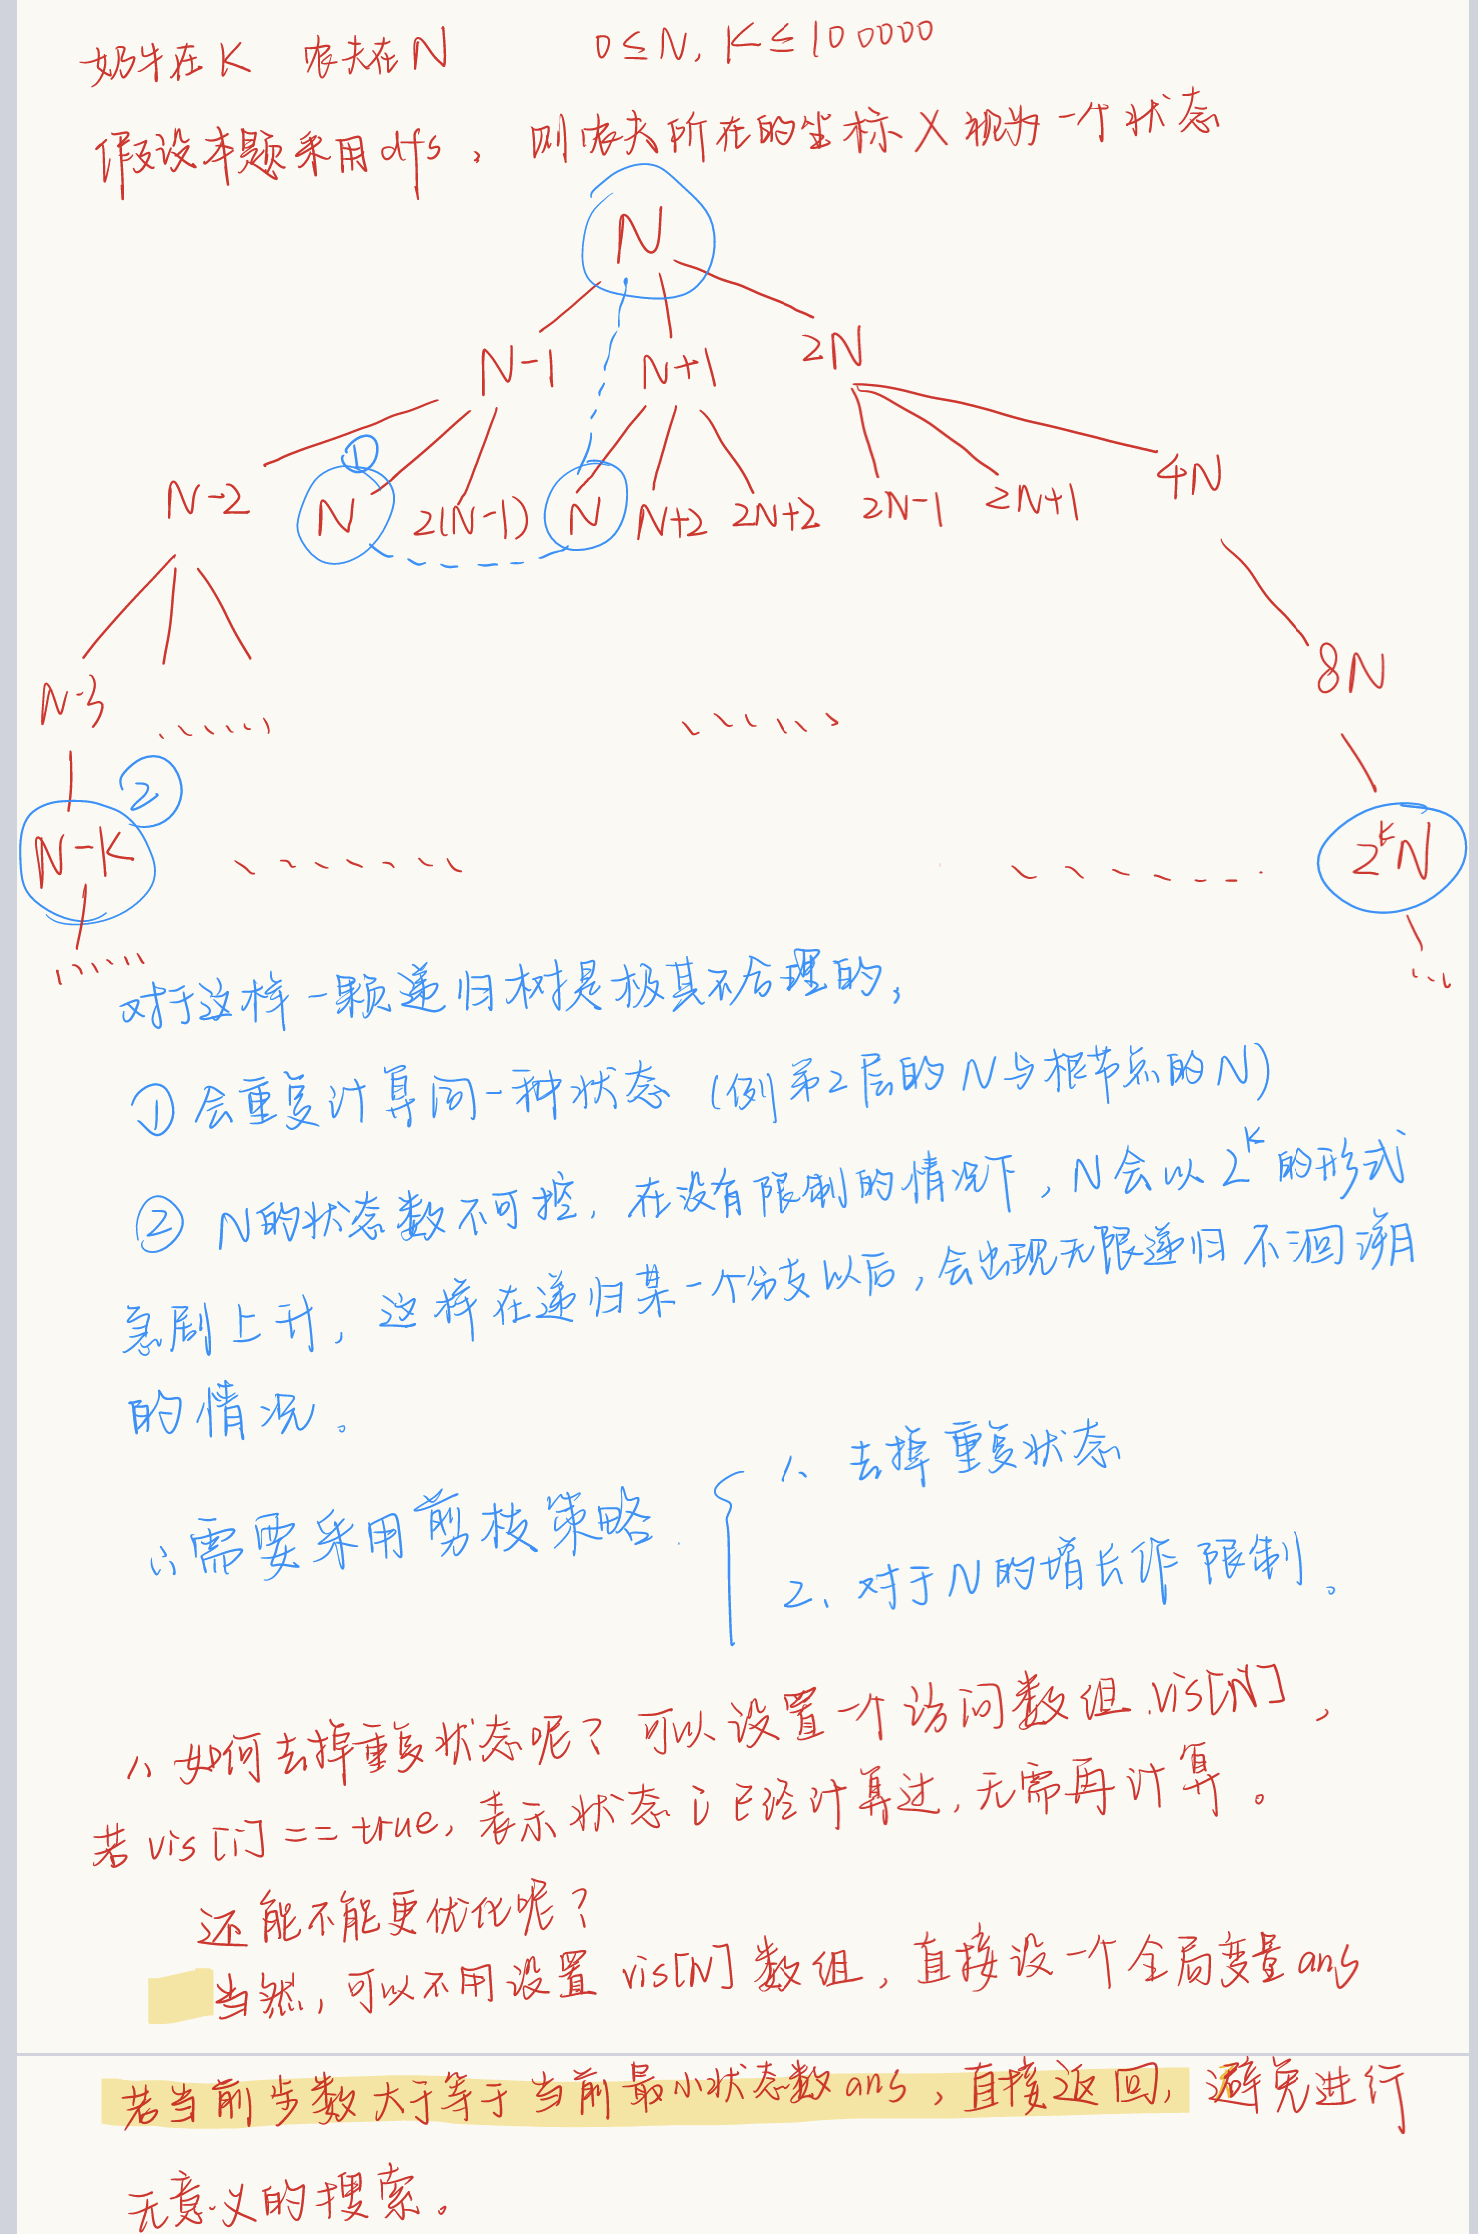 奶牛在K 农夫在N 0≤N, K≤100000
假设本题采用dfs, 则农夫所在的坐标X视为一个状态
N
N-1 N+1 2N
①
N-2 N 2(N-1) N N+2 2N+2 2N-1 2N+1 4N
N-3 8N
②
N-K 2^K N
对于这样一颗递归树是极其不合理的,
① 会重复计算同一种状态 (例第2层的N与根节点的N)
② N的状态数不可控, 在没有限制的情况下, N会以2^K的形式
急剧上升, 这样在递归某一个分支以后, 会出现无限递归不洄溯
的情况。
∴需要采用剪枝策略
1、去掉重复状态
2、对于N的增长作限制。
1、如何去掉重复状态呢? 可以设置一个访问数组vis[N],
若vis[i]==true, 表示状态i已经计算过, 无需再计算。
还能不能更优化呢?
当然, 可以不用设置vis[N]数组, 直接设一个全局变量ans
若当前步数大于等于当前最小状态数ans, 直接返回, 避免进行
无意义的搜索。